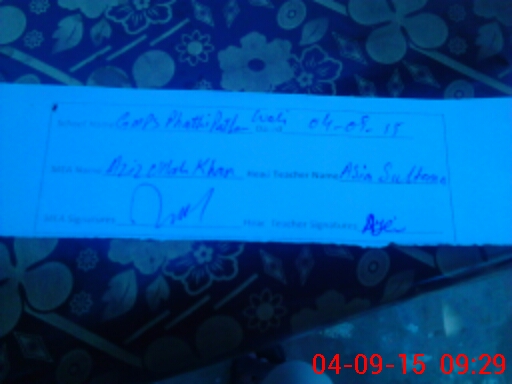 School Name GMPS Phathi Pathan Wali Date 04-09-15
MEA Name Aziz ullah Khan Head Teacher Name Asia Sultana
MEA Signatures Head Teacher Signatures
04-09-15 09:29